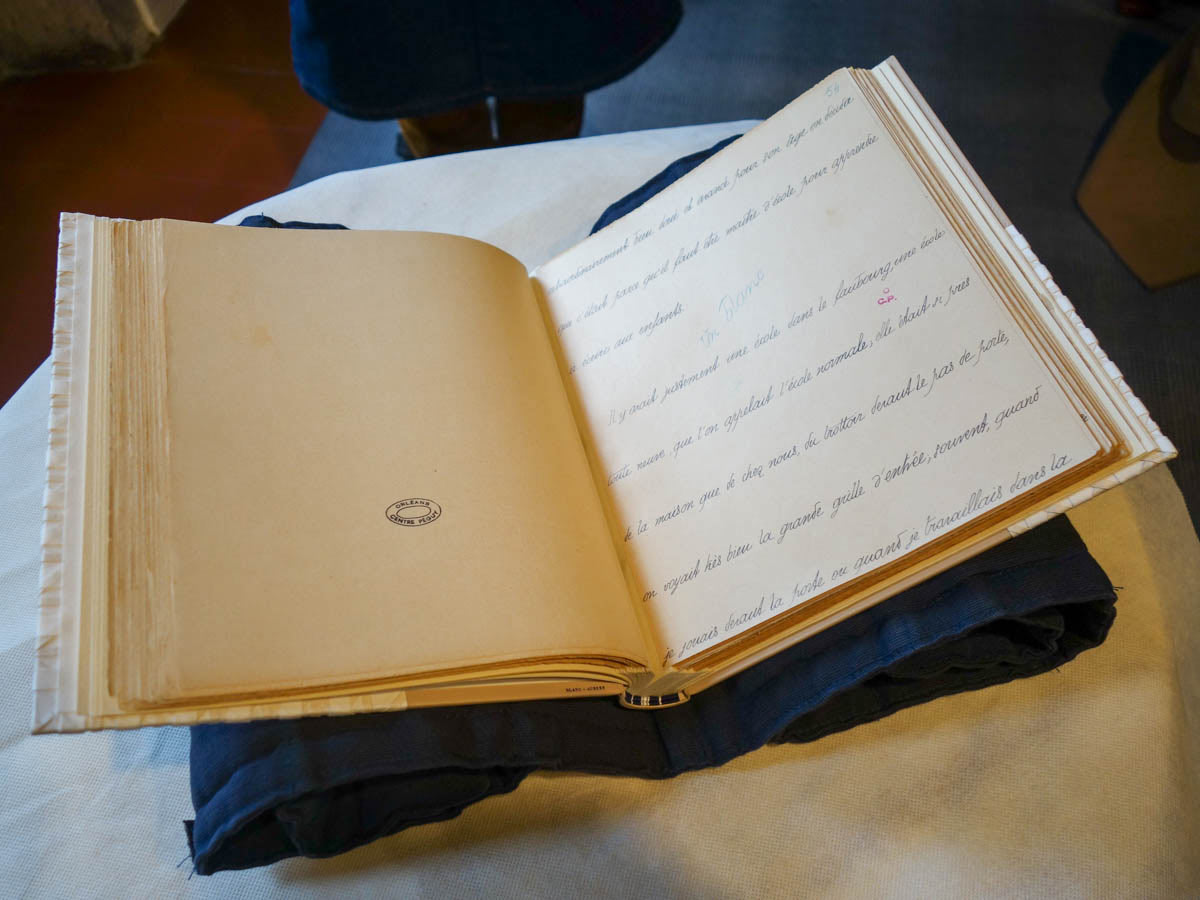 ORLÉANS
CENTRE PÉGUY
54
bien doué et avancé pour son âge on
que c'était parce qu'il faut être maître d'école pour apprendre
à écrire aux enfants.
un blanc
Il y avait justement une école dans le faubourg, une école
C.P.
toute neuve, que l'on appelait l'école normale, elle était si près
de la maison que de chez nous, du trottoir devant le pas de porte,
on voyait très bien la grande grille d'entrée, souvent, quand
je jouais devant la porte ou quand je travaillais dans la